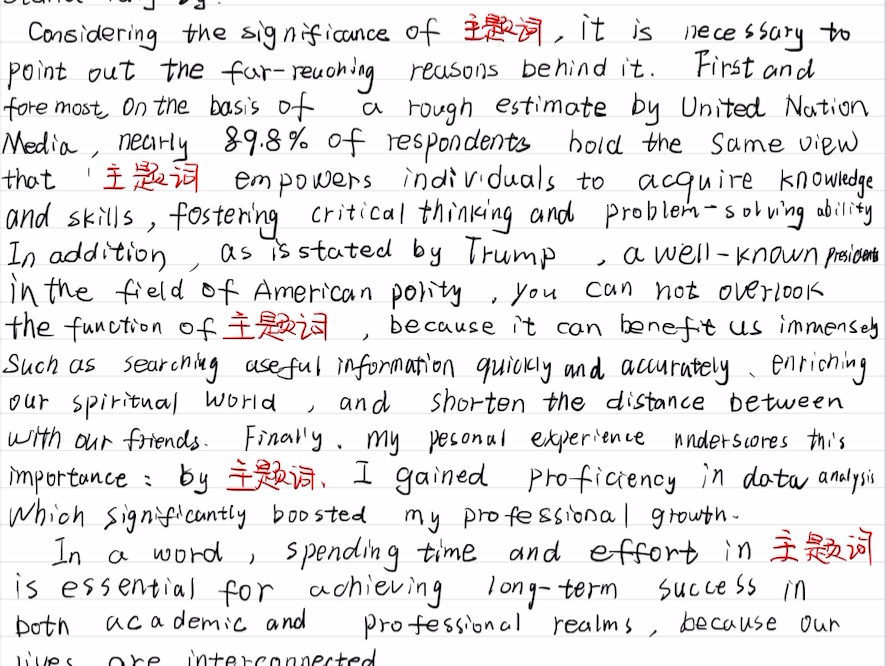 Considering the significance of 主题词, it is necessary to
point out the far-reaching reasons behind it. First and
foremost, On the basis of a rough estimate by United Nation
Media, nearly 89.8% of respondents hold the same view
that 主题词 empowers individuals to acquire knowledge
and skills, fostering critical thinking and problem-solving ability
In addition, as is stated by Trump, a well-known president
in the field of American polity, you can not overlook
the function of 主题词, because it can benefit us immensely
Such as searching useful information quickly and accurately、enriching
our spiritual world, and shorten the distance between
with our friends. Finally, my pesonal experience underscores this
importance: by 主题词、I gained proficiency in data analysis
Which significantly boosted my professional growth.
In a word, spending time and effort in 主题词
is essential for achieving long-term success in
both academic and professional realms, because our
lives are interconnected